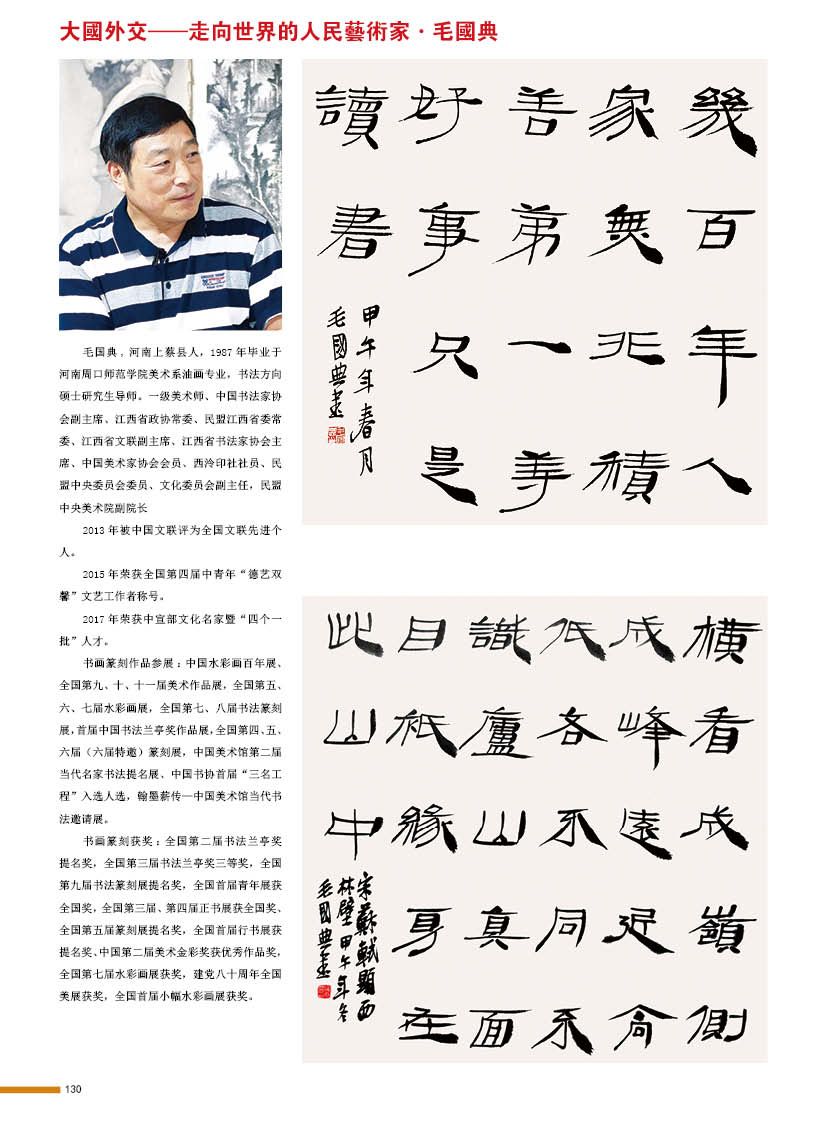 大國外交——走向世界的人民藝術家·毛國典
毛国典，河南上蔡县人，1987年毕业于
河南周口师范学院美术系油画专业，书法方向
硕士研究生导师。一级美术师、中国书法家协
会副主席、江西省政协常委、民盟江西省委常
委、江西省文联副主席、江西省书法家协会主
席、中国美术家协会会员、西泠印社社员、民
盟中央委员会委员、文化委员会副主任，民盟
中央美术院副院长
2013年被中国文联评为全国文联先进个
人。
2015年荣获全国第四届中青年“德艺双
馨”文艺工作者称号。
2017年荣获中宣部文化名家暨“四个一
批”人才。
书画篆刻作品参展：中国水彩画百年展、
全国第九、十、十一届美术作品展，全国第五、
六、七届水彩画展，全国第七、八届书法篆刻
展，首届中国书法兰亭奖作品展，全国第四、五、
六届（六届特邀）篆刻展，中国美术馆第二届
当代名家书法提名展、中国书协首届“三名工
程”入选人选，翰墨薪传—中国美术馆当代书
法邀请展。
书画篆刻获奖：全国第二届书法兰亭奖
提名奖，全国第三届书法兰亭奖三等奖，全国
第九届书法篆刻展提名奖，全国首届青年展获
全国奖，全国第三届、第四届正书展获全国奖、
全国第五届篆刻展提名奖，全国首届行书展获
提名奖、中国第二届美术金彩奖获优秀作品奖，
全国第七届水彩画展获奖，建党八十周年全国
美展获奖，全国首届小幅水彩画展获奖。
幾百年人
家無非積
善第一等
好事只是
讀書
甲午年春月
毛國典書
橫看成嶺側
成峰遠近高
低各不同不
識廬山真面
目祇緣身在
此山中
宋蘇軾題西
林壁甲午年冬
毛國典書
130